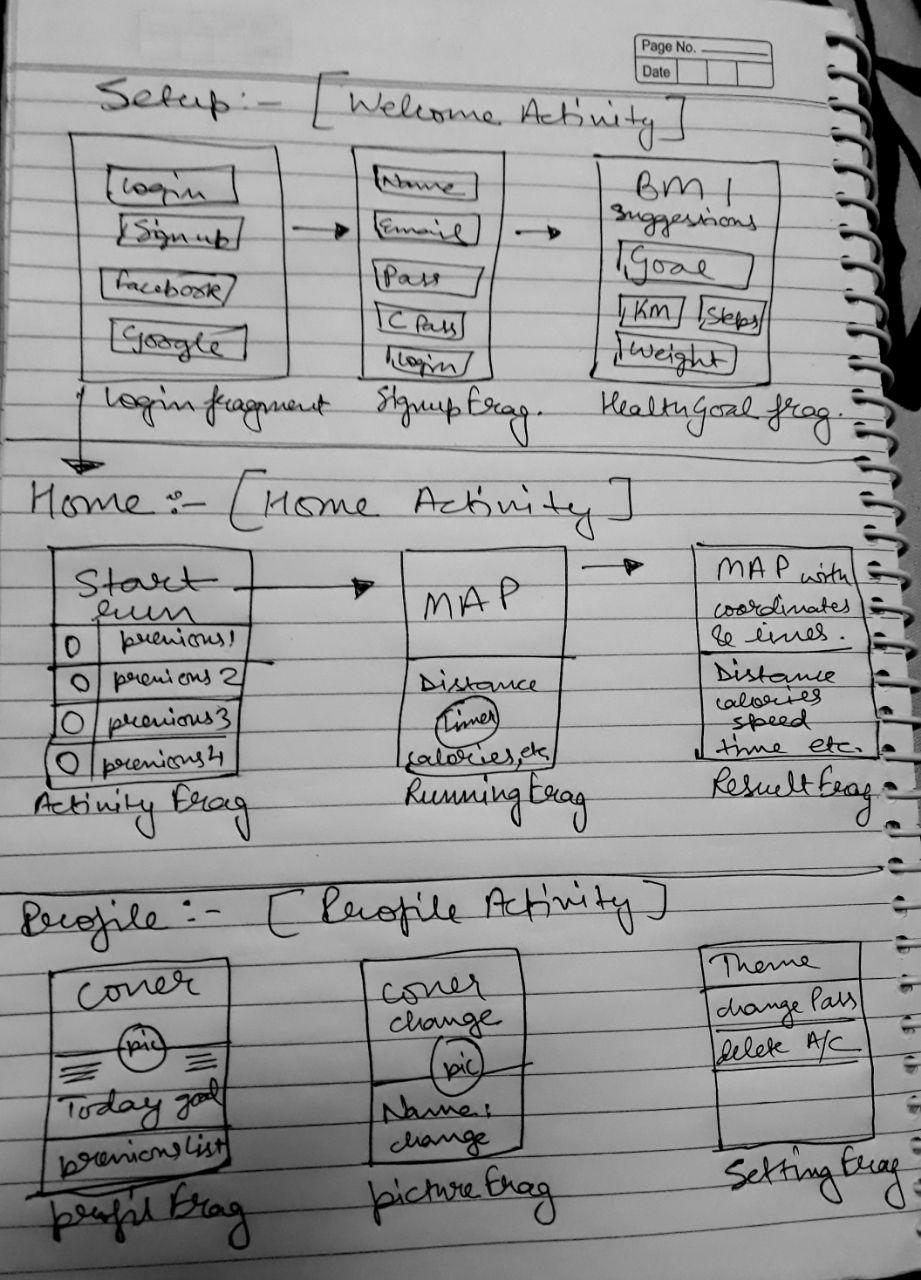 Page No.
Date
Setup:- [Welcome Activity]
Login
Signup
Facebook
Google
Login fragment
Name
Email
Pass
C Pass
Login
Signup Frag.
BMI
Suggestions
Goal
KM Steps
Weight
HealthGoal frag.
Home:- [Home Activity]
Start
Run
O previous1
O previous2
O previous3
O previous4
Activity Frag
MAP
Distance
Timer
calories, etc
Running Frag
MAP with
coordinates
& times.
Distance
calories
speed
time etc.
Result Frag
Profile:- [Profile Activity]
Cover
pic
Today goal
previous list
profil Frag
cover
change
pic
Name:
change
picture Frag
Theme
change Pass
delete A/C
Setting Frag